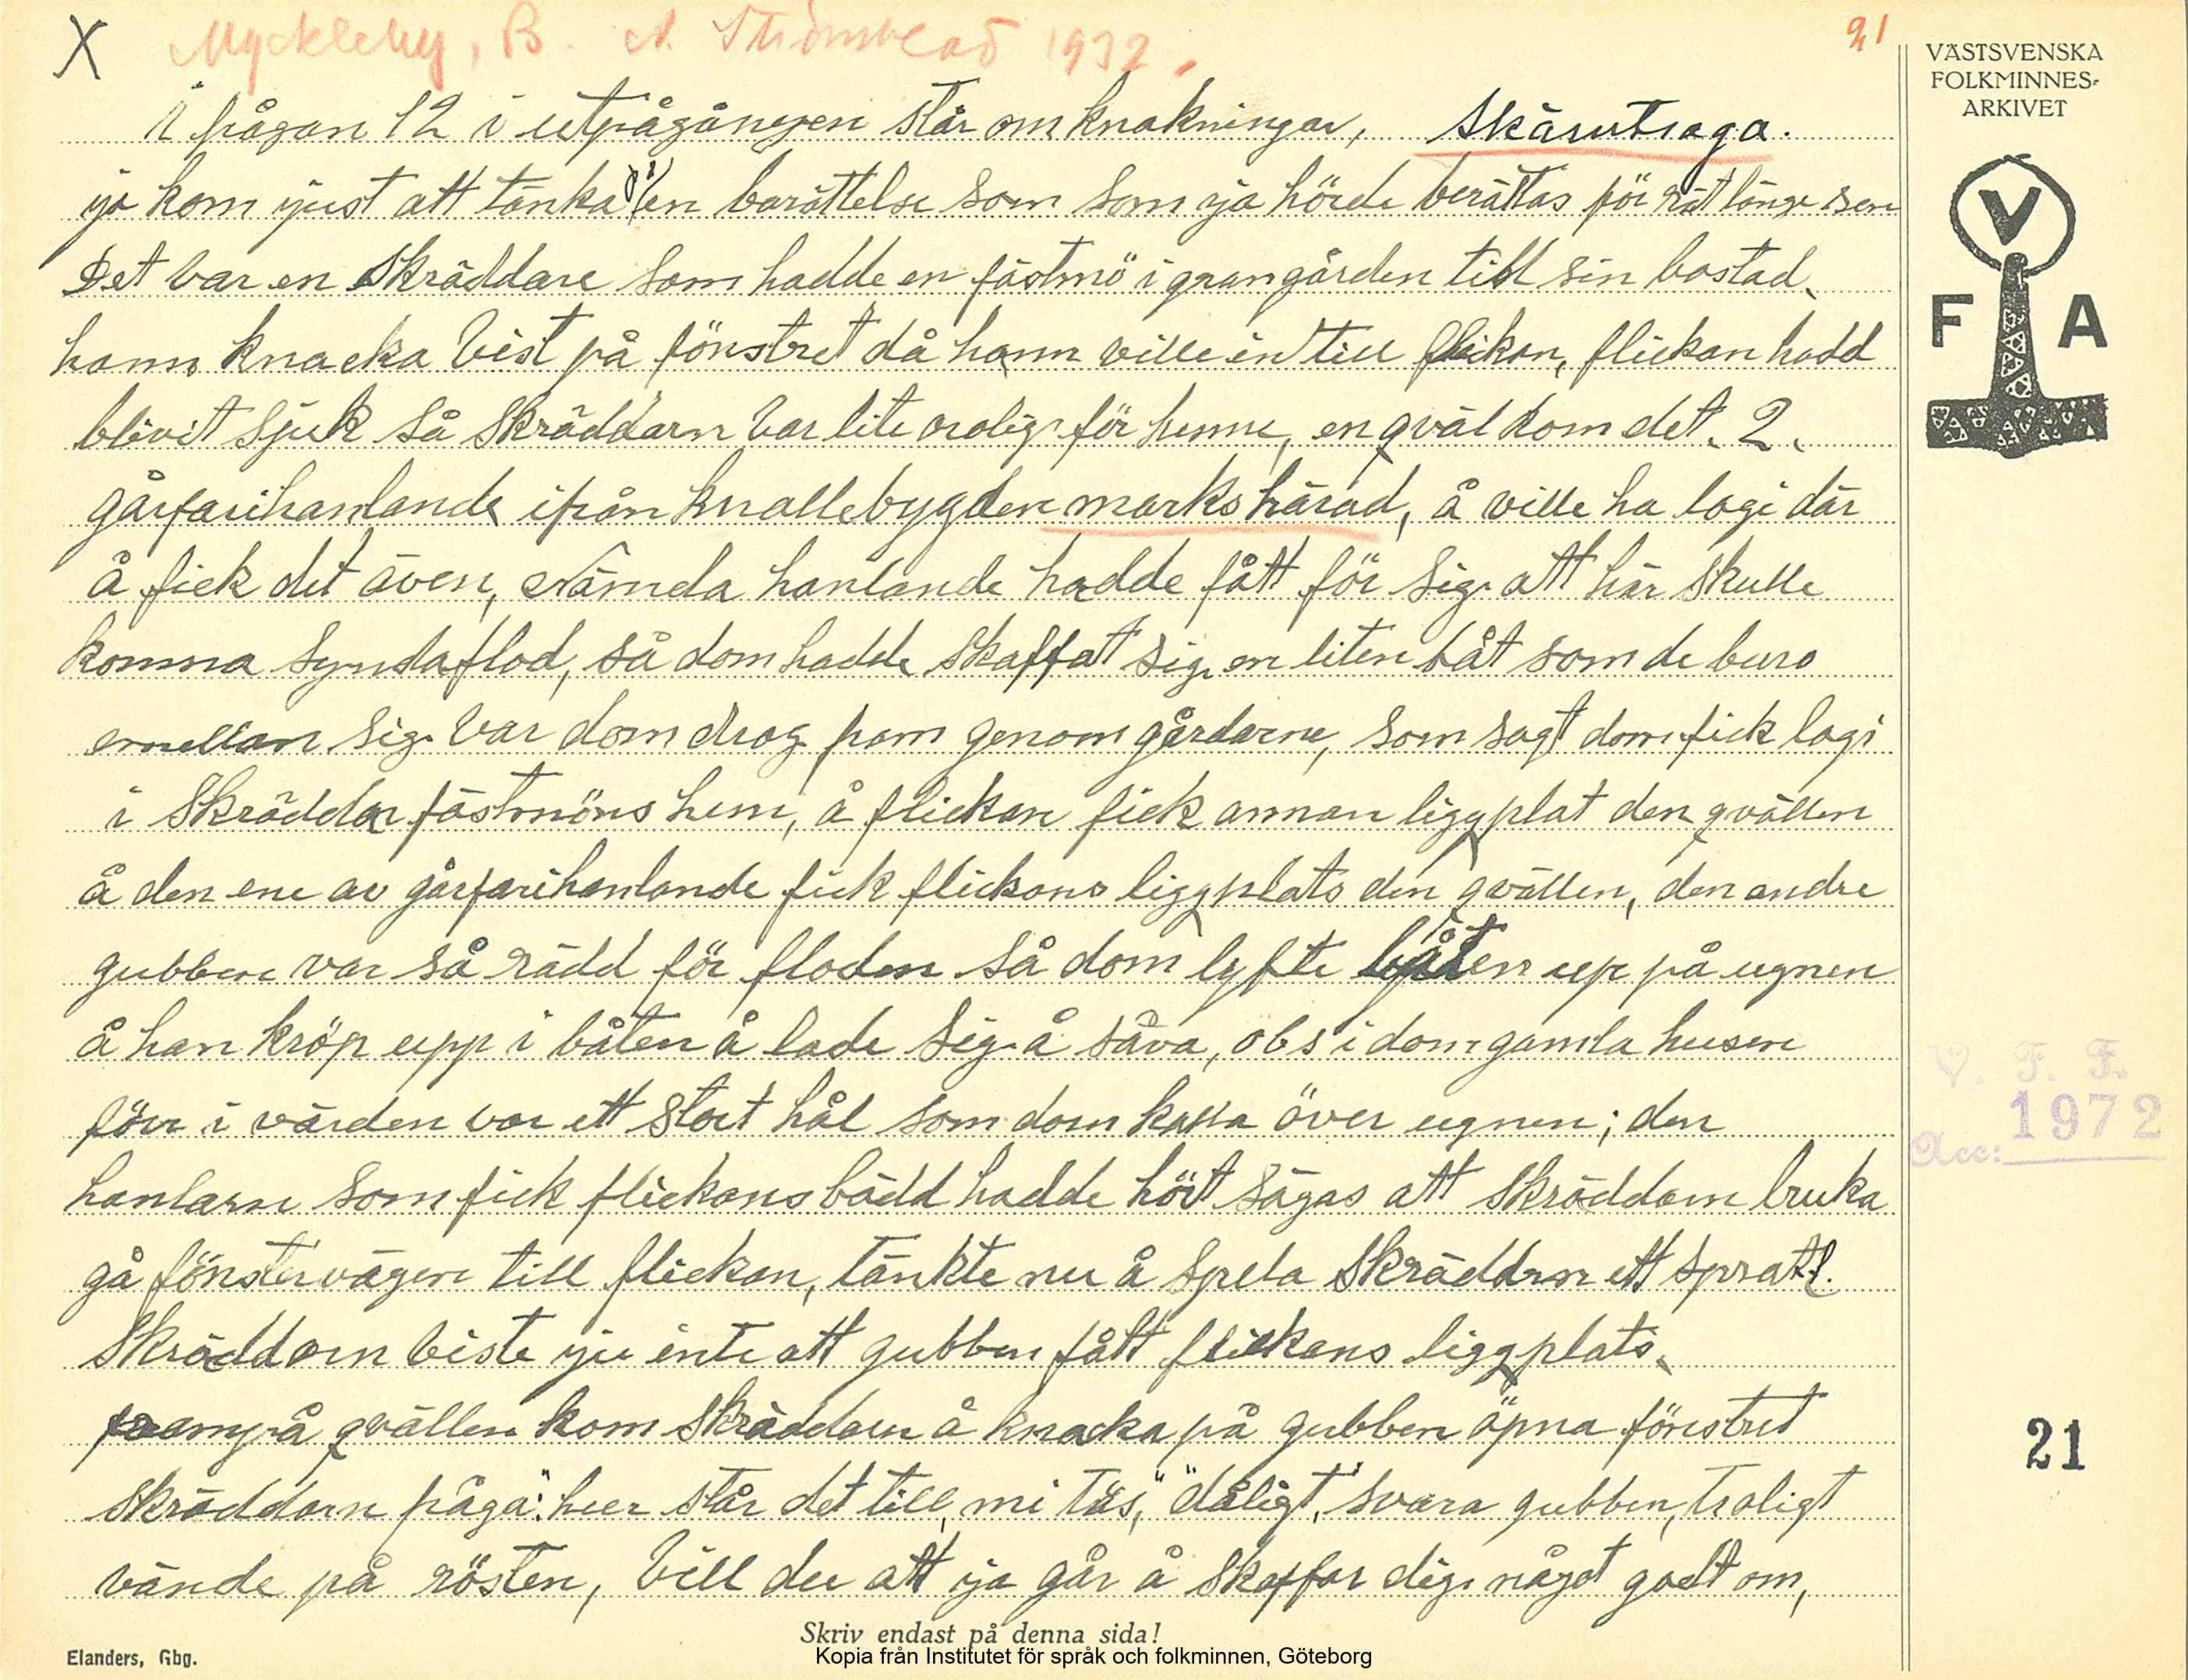 X Myckleby, B. A. Strömblad 1932.
21
VÄSTSVENSKA
FOLKMINNES-
ARKIVET
V
F A
i frågan 12 i utfrågången står om knakningar, Skämtsaga.
ja kom just att tänka på en barättelse som som ja hörde berättas för rät länge sen
Det var en skräddare som hadde en fästmö i grangården till sin bostad,
hann knacka vist på fönstret då hann ville in till flickan, flickan hadd
blivit sjuk så skräddarn var lite orolig för henne, en qväl kom det. 2.
gårfarihanlande ifrån knallebygden marks härad, å ville ha logi där
å fick det även, Nämda hanlande hadde fått för sig att här skulle
komma syndaflod, så dom hadde skaffat sig en liten båt som de buro
emellan sig var dom drog fram genom gårdarne, som sagt dom fick logi
i skräddar fästmöns hem, å flickan fick annan liggplat den qvällen
å den ene av gårfarihanlande fick flickans liggplats den qvällen, den andre
gubben var så rädd för floden så dom lyfte båten up på ugnen
å han kröp upp i båten å lade sig å såva, obs i dom gamla husen
förr i värden var ett stort hål som dom kalla över ugnen; den
hanlarn som fick flickans bädd hadde hört sägas att skräddarn bruka
gå fönstervägen till flickan, tänkte nu å spela skräddrn ett spratt.
Skräddarn viste ju inte att gubben fått flickans liggplats,
frampå qvällen kom skräddarn å knacka på gubben öpna fönstret
skräddarn fråga: "hur står det till, mi täs," "dåligt," svara gubben, troligt
vände på rösten, vill du att ja går å skaffar dig något godt om,
V. F. F.
Acc: 1972
21
Skriv endast på denna sida!
Elanders, Gbg.
Kopia från Institutet för språk och folkminnen, Göteborg